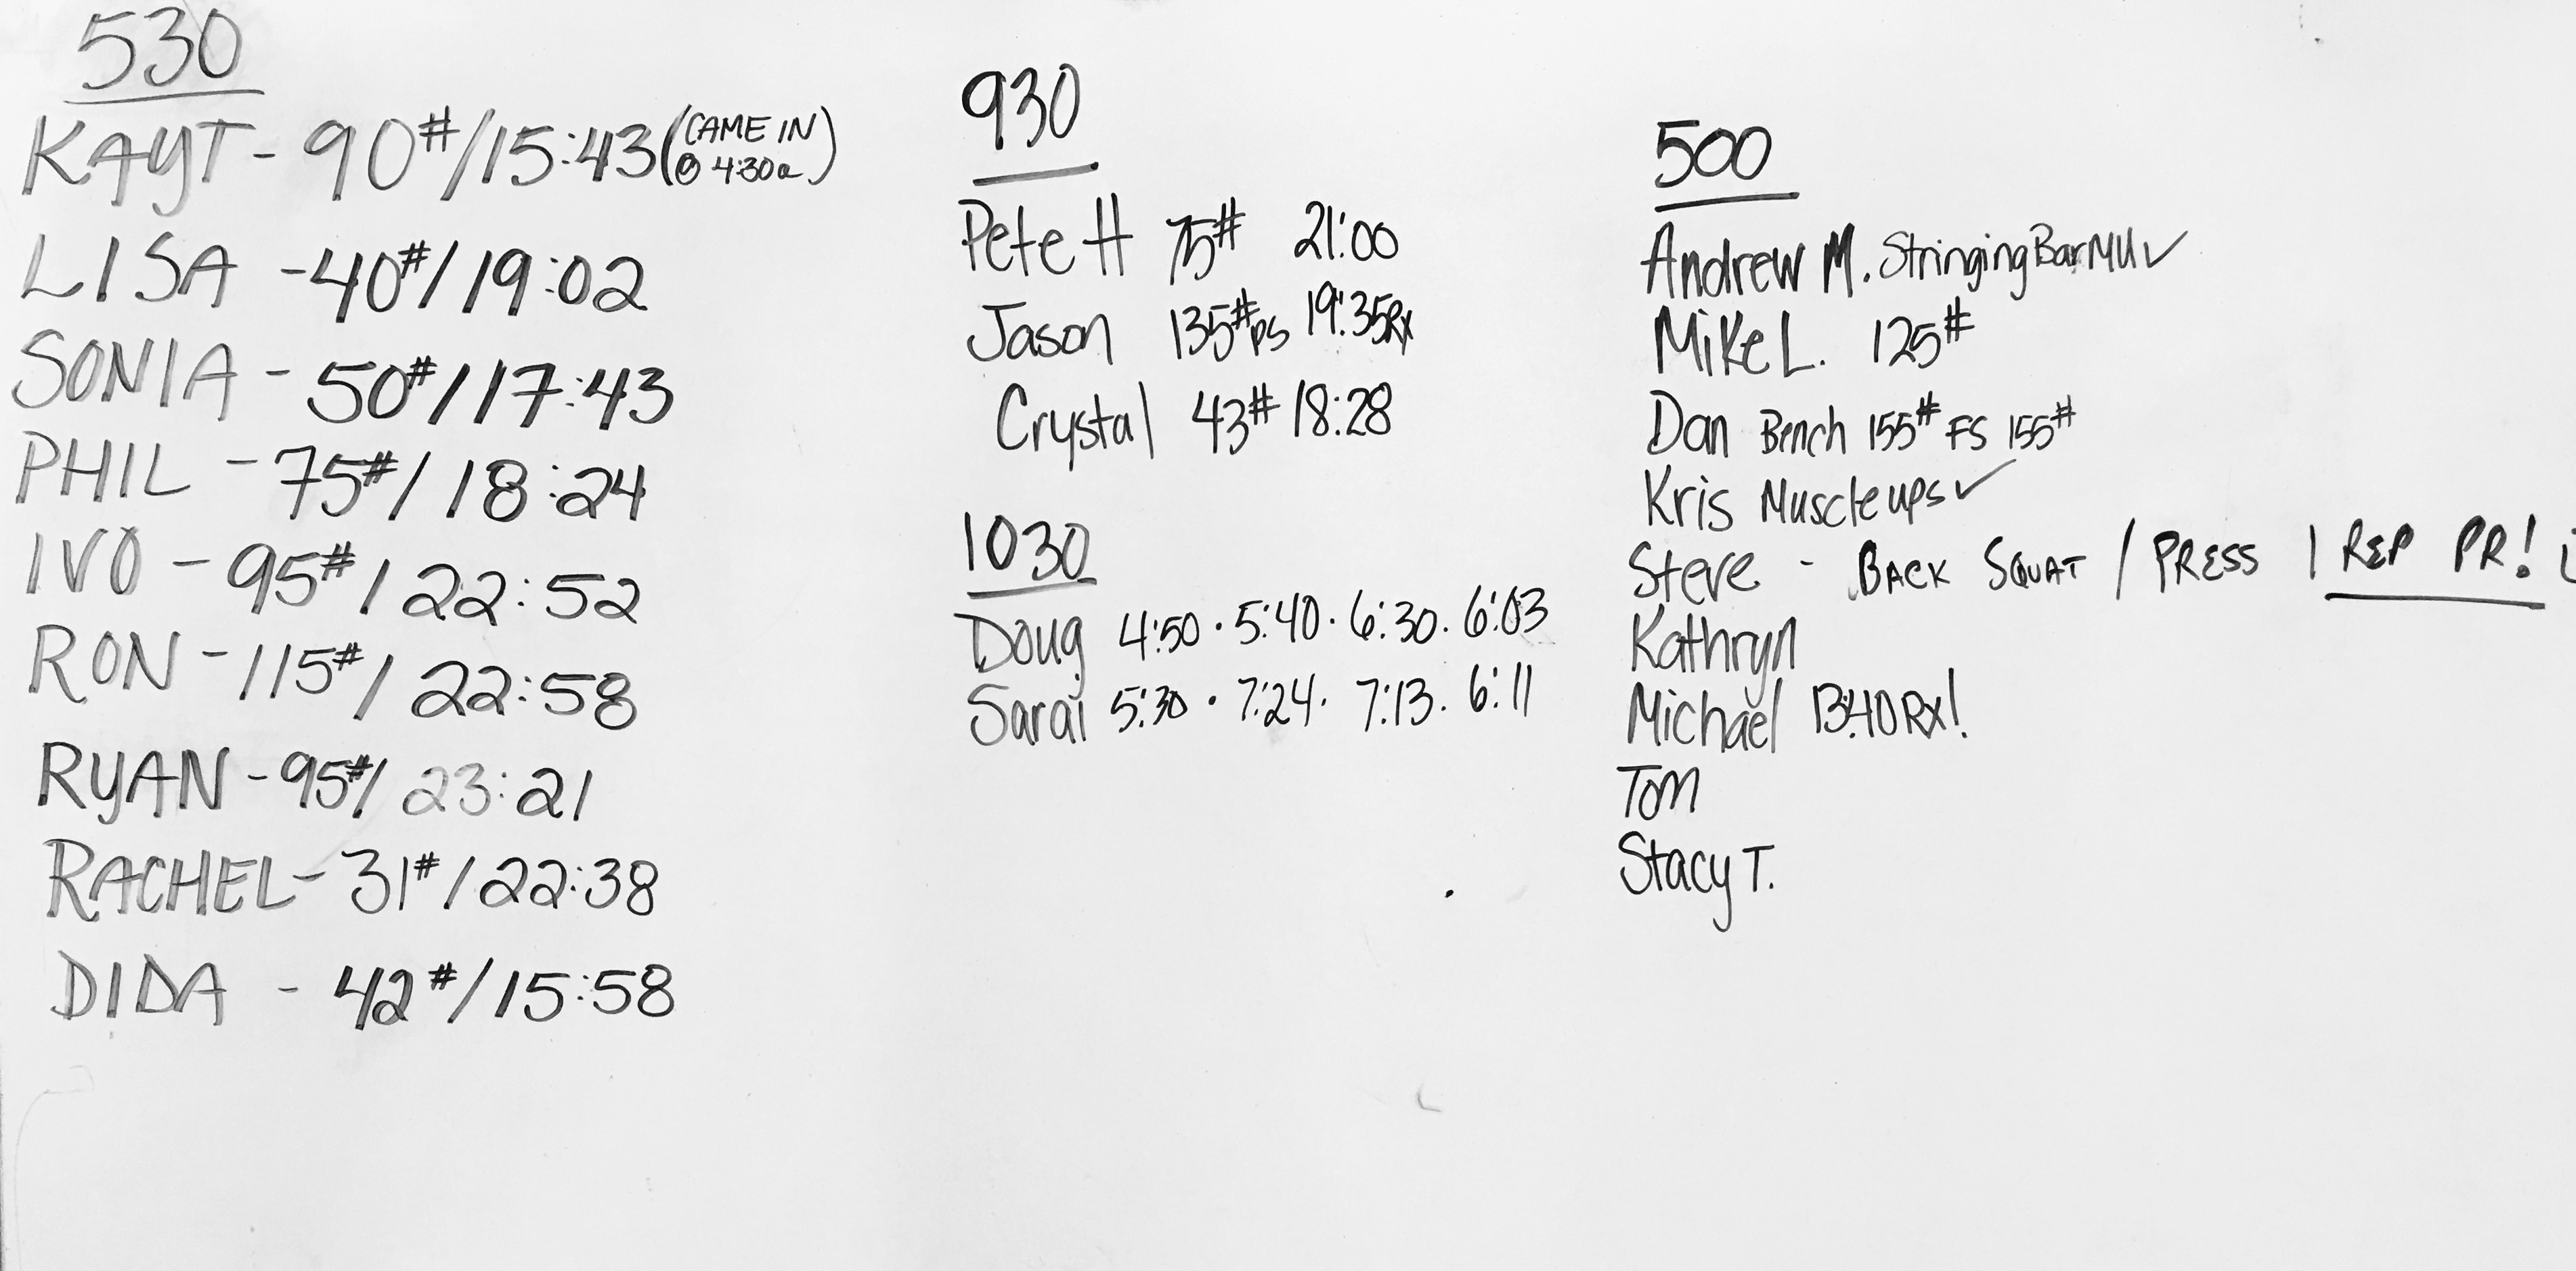 530
KAYT - 90#/15:43 (CAME IN @ 4:30a)
LISA - 40#/19:02
SONIA - 50#/17:43
PHIL - 75#/18:24
IVO - 95#/22:52
RON - 115#/22:58
RYAN - 95#/23:21
RACHEL - 31#/22:38
DIDA - 42#/15:58
930
Pete H 75# 21:00
Jason 135# PS 19:35 Rx
Crystal 43# 18:28
1030
Doug 4:50 · 5:40 · 6:30 · 6:03
Sarai 5:30 · 7:24 · 7:13 · 6:11
500
Andrew M. Stringing Bar MU ✓
Mike L. 125#
Dan Bench 155# FS 155#
Kris Muscle ups ✓
Steve - BACK SQUAT / PRESS 1 REP PR!
Kathryn
Michael 13:40 Rx!
Tom
Stacy T.